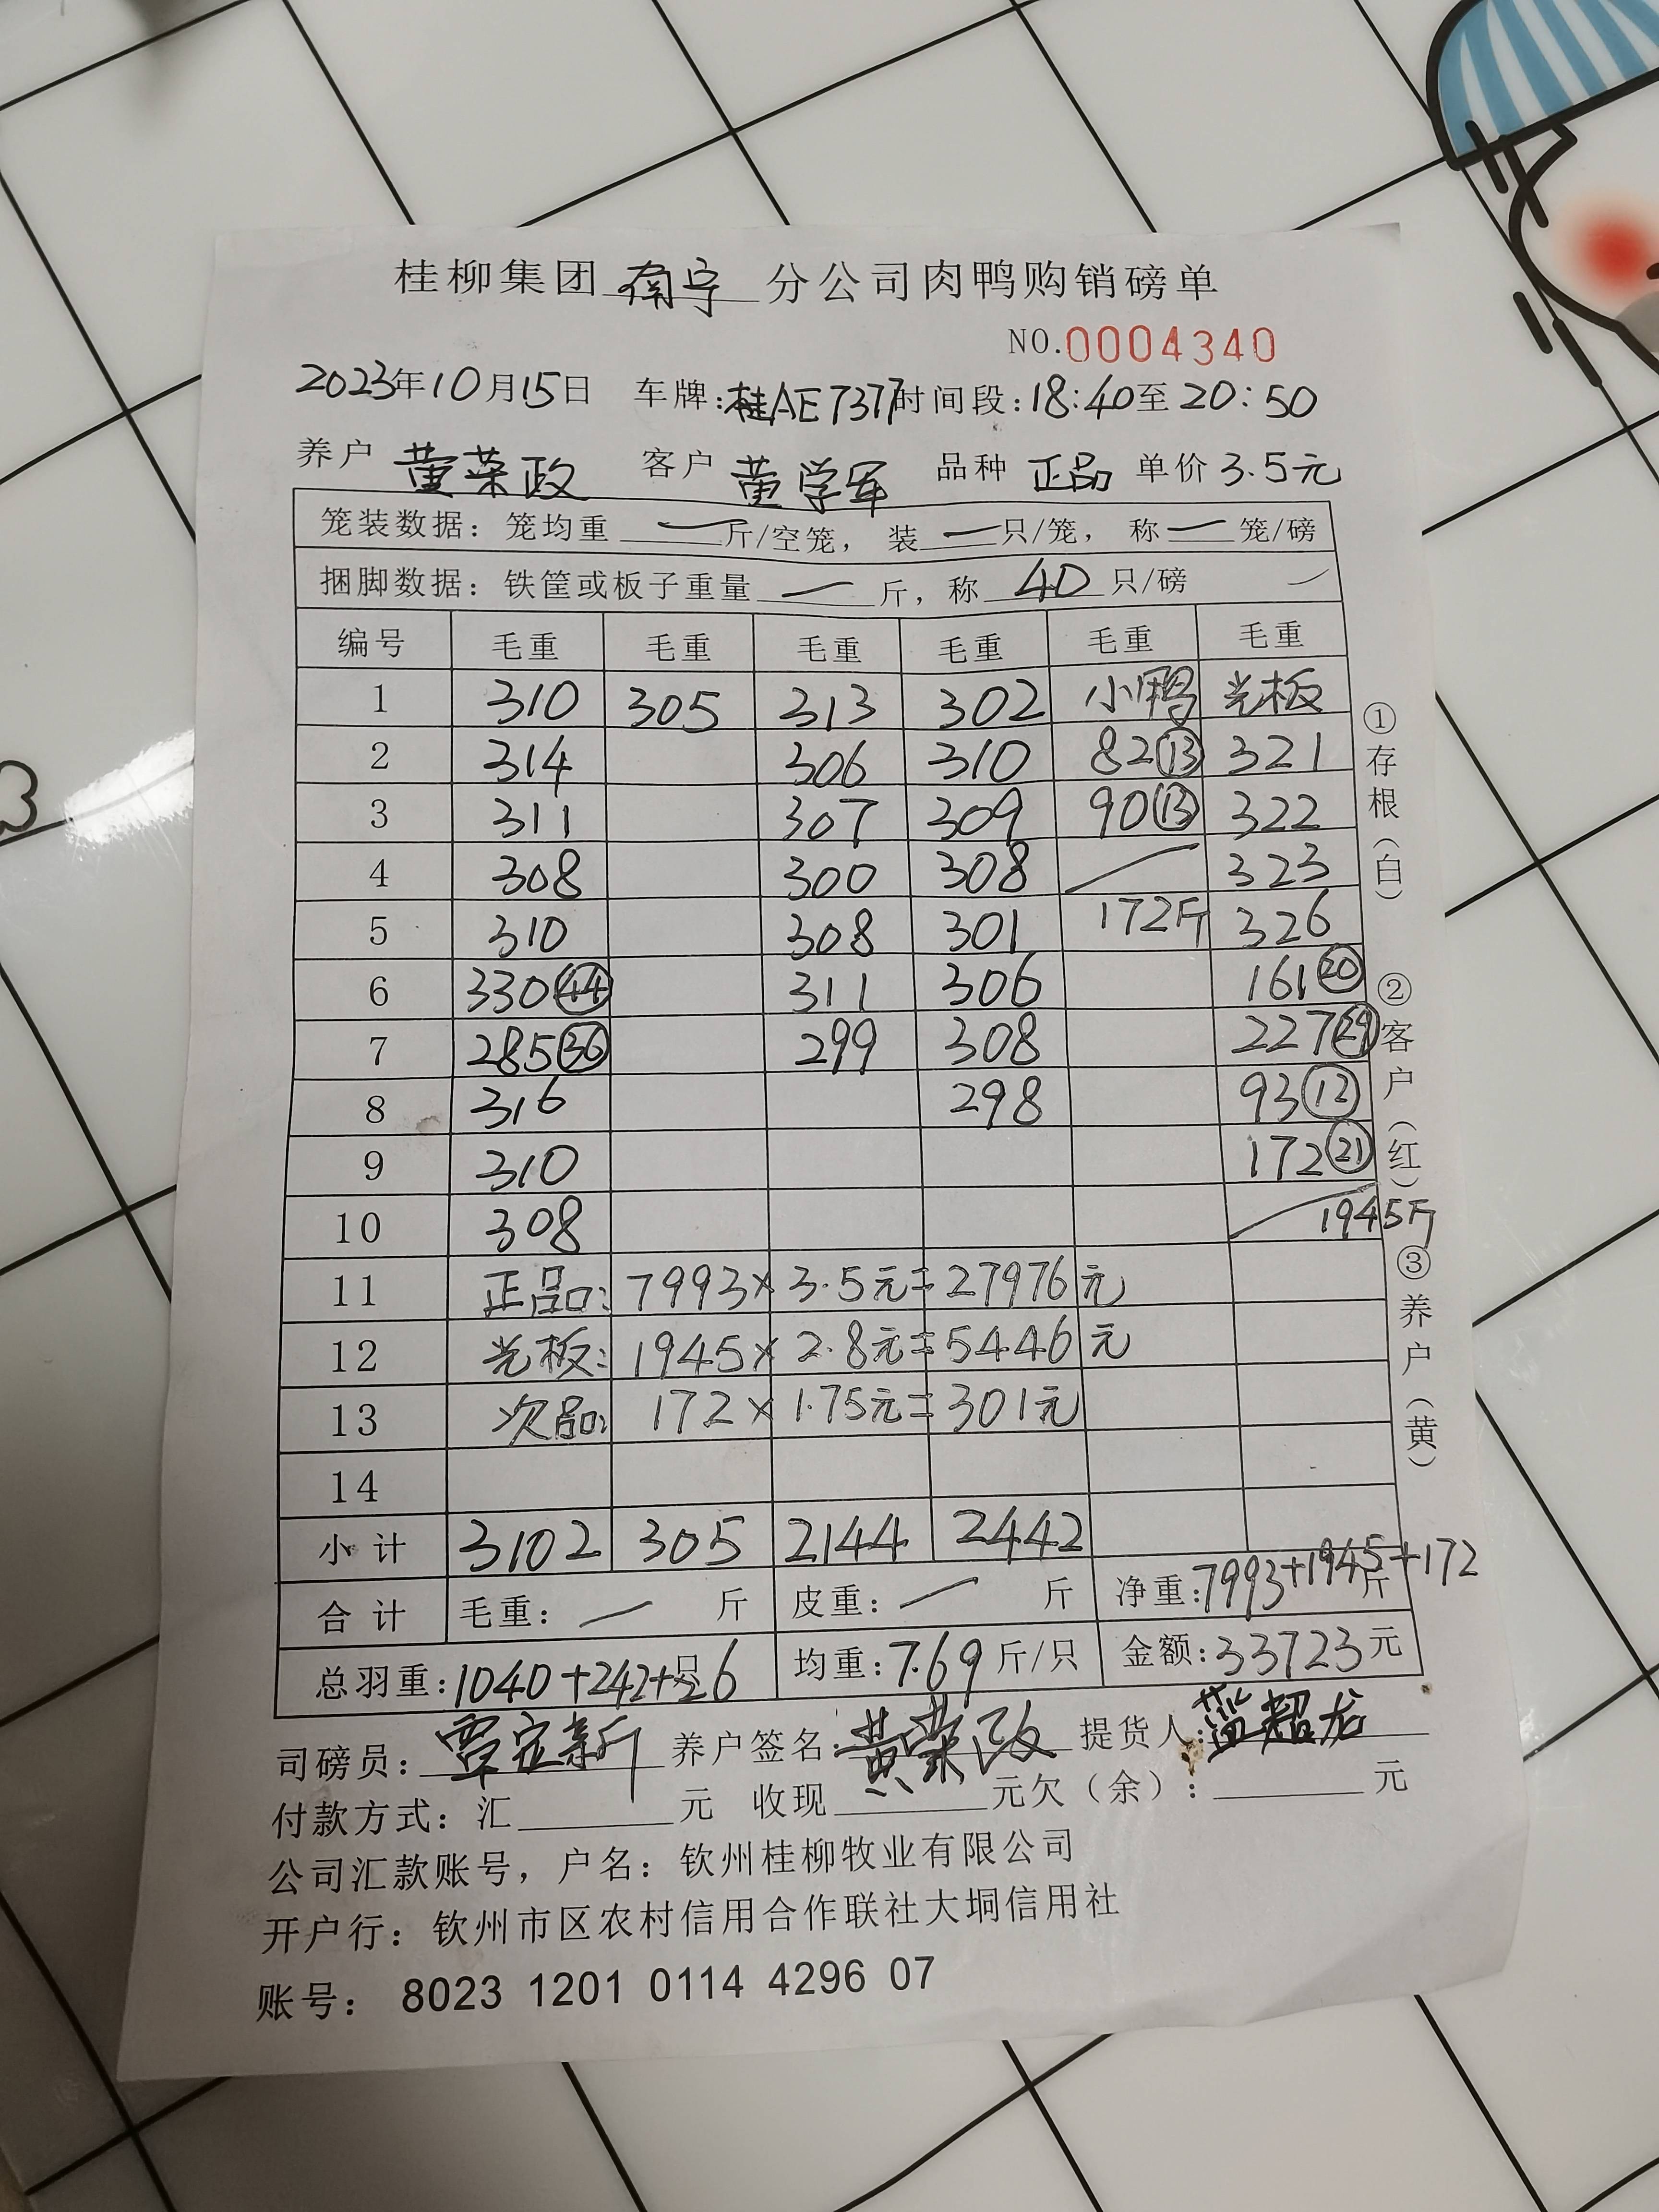 桂柳集团 南宁 分公司肉鸭购销磅单
NO.0004340
2023年10月15日 车牌:桂AE7377时间段:18:40至20:50
养户 黄荣政 客户 黄学军 品种 正品 单价3.5元
笼装数据: 笼均重 — 斤/空笼, 装 — 只/笼, 称 — 笼/磅
捆脚数据: 铁筐或板子重量 — 斤, 称 40 只/磅
编号 毛重 毛重 毛重 毛重 毛重 毛重
1 310 305 313 302 小鸭 光板
2 314 306 310 82⑬ 321
3 311 307 309 90⑬ 322
4 308 300 308 323
5 310 308 301 172斤 326
6 330㊹ 311 306 161⑳
7 285㊱ 299 308 227㉙
8 316 298 93⑫
9 310 172㉑
10 308 1945斤
11 正品: 7993×3.5元=27976元
12 光板: 1945×2.8元=5446元
13 次品: 172×1.75元=301元
14
小计 3102 305 2144 2442
合计 毛重: — 斤 皮重: — 斤 净重:7993+1945+172斤
总羽重:1040+242+26只 均重:7.69斤/只 金额:33723元
司磅员: 覃定新 养户签名: 黄荣政 提货人: 蓝超龙
付款方式: 汇 元 收现 元欠(余): 元
公司汇款账号, 户名: 钦州桂柳牧业有限公司
开户行: 钦州市区农村信用合作联社大垌信用社
账号: 8023 1201 0114 4296 07
①存根(白) ②客户(红) ③养户(黄)